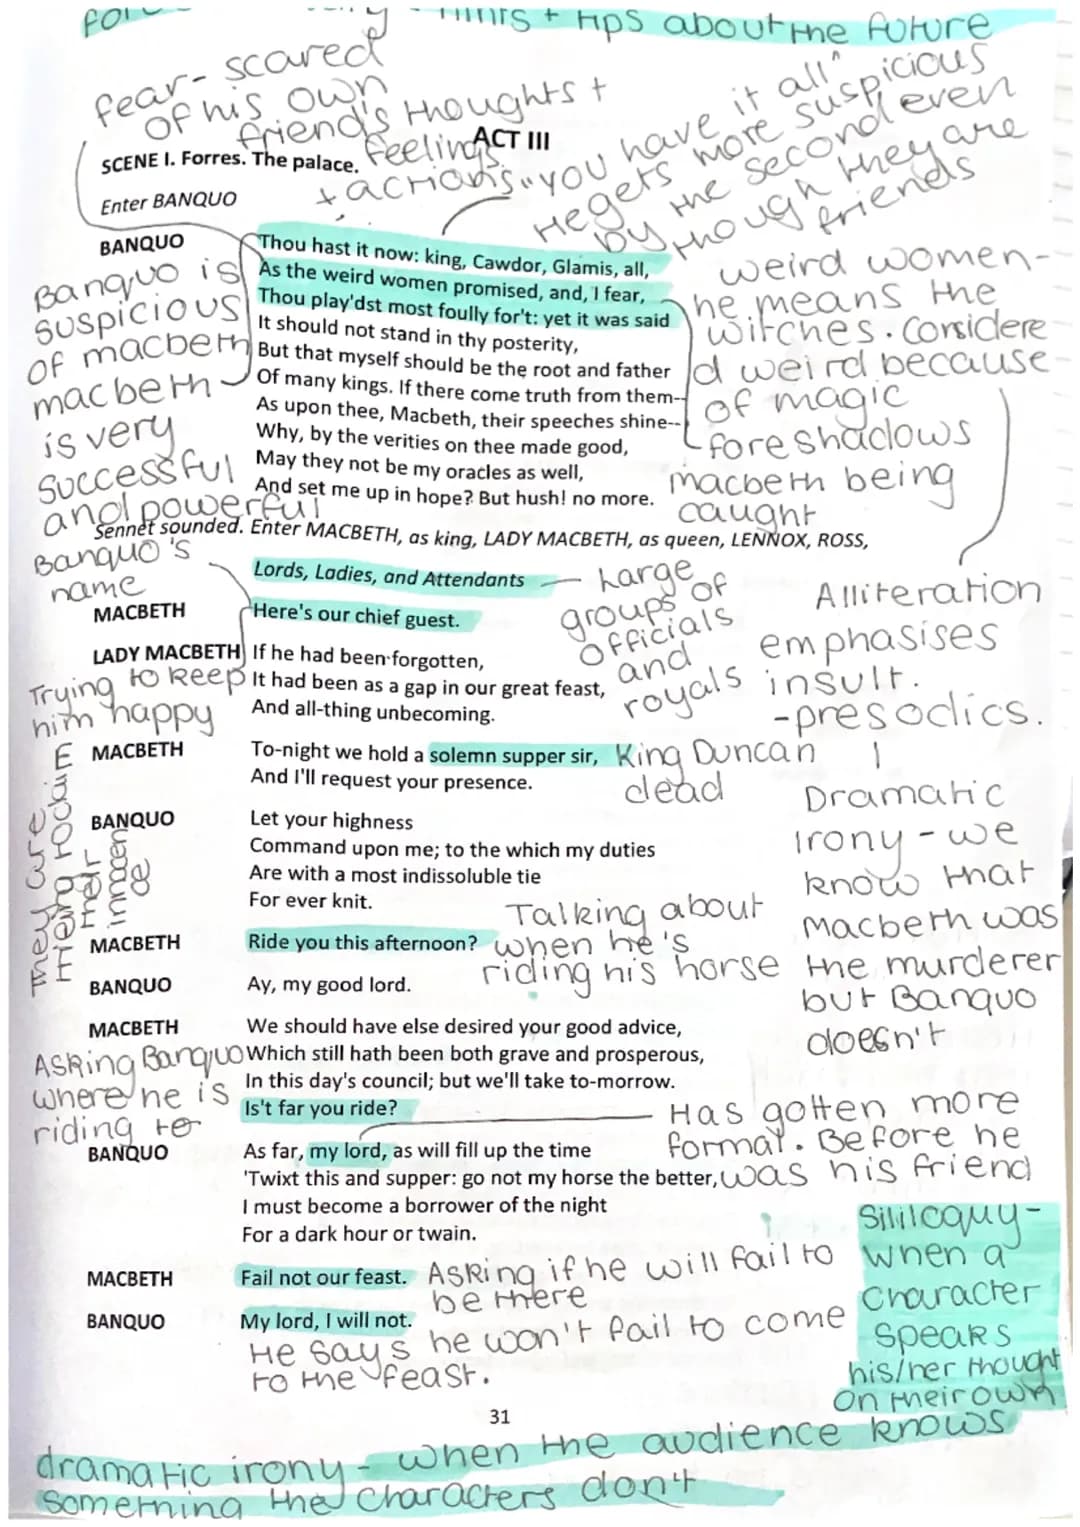 hints + tips about the future
fear- scared
of his own
friend's thoughts +
feelings
+ actions
"you have it all"
He gets more suspicious
by the second even
though they are
friends
ACT III
SCENE I. Forres. The palace.
Enter BANQUO
BANQUO
Thou hast it now: king, Cawdor, Glamis, all,
As the weird women promised, and, I fear,
Thou play'dst most foully for't: yet it was said
It should not stand in thy posterity,
But that myself should be the root and father
Of many kings. If there come truth from them--
As upon thee, Macbeth, their speeches shine--
Why, by the verities on thee made good,
May they not be my oracles as well,
And set me up in hope? But hush! no more.
Banquo is
suspicious
of macbeth
macbeth
is very
successful
and powerful
weird women-
he means the
witches. Considere
d weird because
of magic
foreshadows
macbeth being
caught
Sennet sounded. Enter MACBETH, as king, LADY MACBETH, as queen, LENNOX, ROSS,
Lords, Ladies, and Attendants
Banquo's
name
Large
groups of
officials
and
royals
Alliteration
emphasises
insult.
-presodics.
MACBETH
Here's our chief guest.
LADY MACBETH
If he had been forgotten,
It had been as a gap in our great feast,
And all-thing unbecoming.
Trying to keep
him happy
MACBETH
To-night we hold a solemn supper sir,
And I'll request your presence.
King Duncan
dead
Dramatic
irony - we
know that
macbeth was
the murderer
but Banquo
doesn't
BANQUO
Let your highness
Command upon me; to the which my duties
Are with a most indissoluble tie
For ever knit.
they are
MACBETH
Ride you this afternoon?
Talking about
when he's
riding his horse
BANQUO
Ay, my good lord.
MACBETH
We should have else desired your good advice,
Which still hath been both grave and prosperous,
In this day's council; but we'll take to-morrow.
Is't far you ride?
Asking Banquo
where he is
riding to
Has gotten more
formal. Before he
was his friend
BANQUO
As far, my lord, as will fill up the time
'Twixt this and supper: go not my horse the better,
I must become a borrower of the night
For a dark hour or twain.
MACBETH
Fail not our feast.
Asking if he will fail to
be there
BANQUO
My lord, I will not.
He says he won't fail to come
to the feast.
Sililoquy-
when a
character
speaks
his/her thought
on their own
31
dramatic irony - when the audience knows
something the characters don't